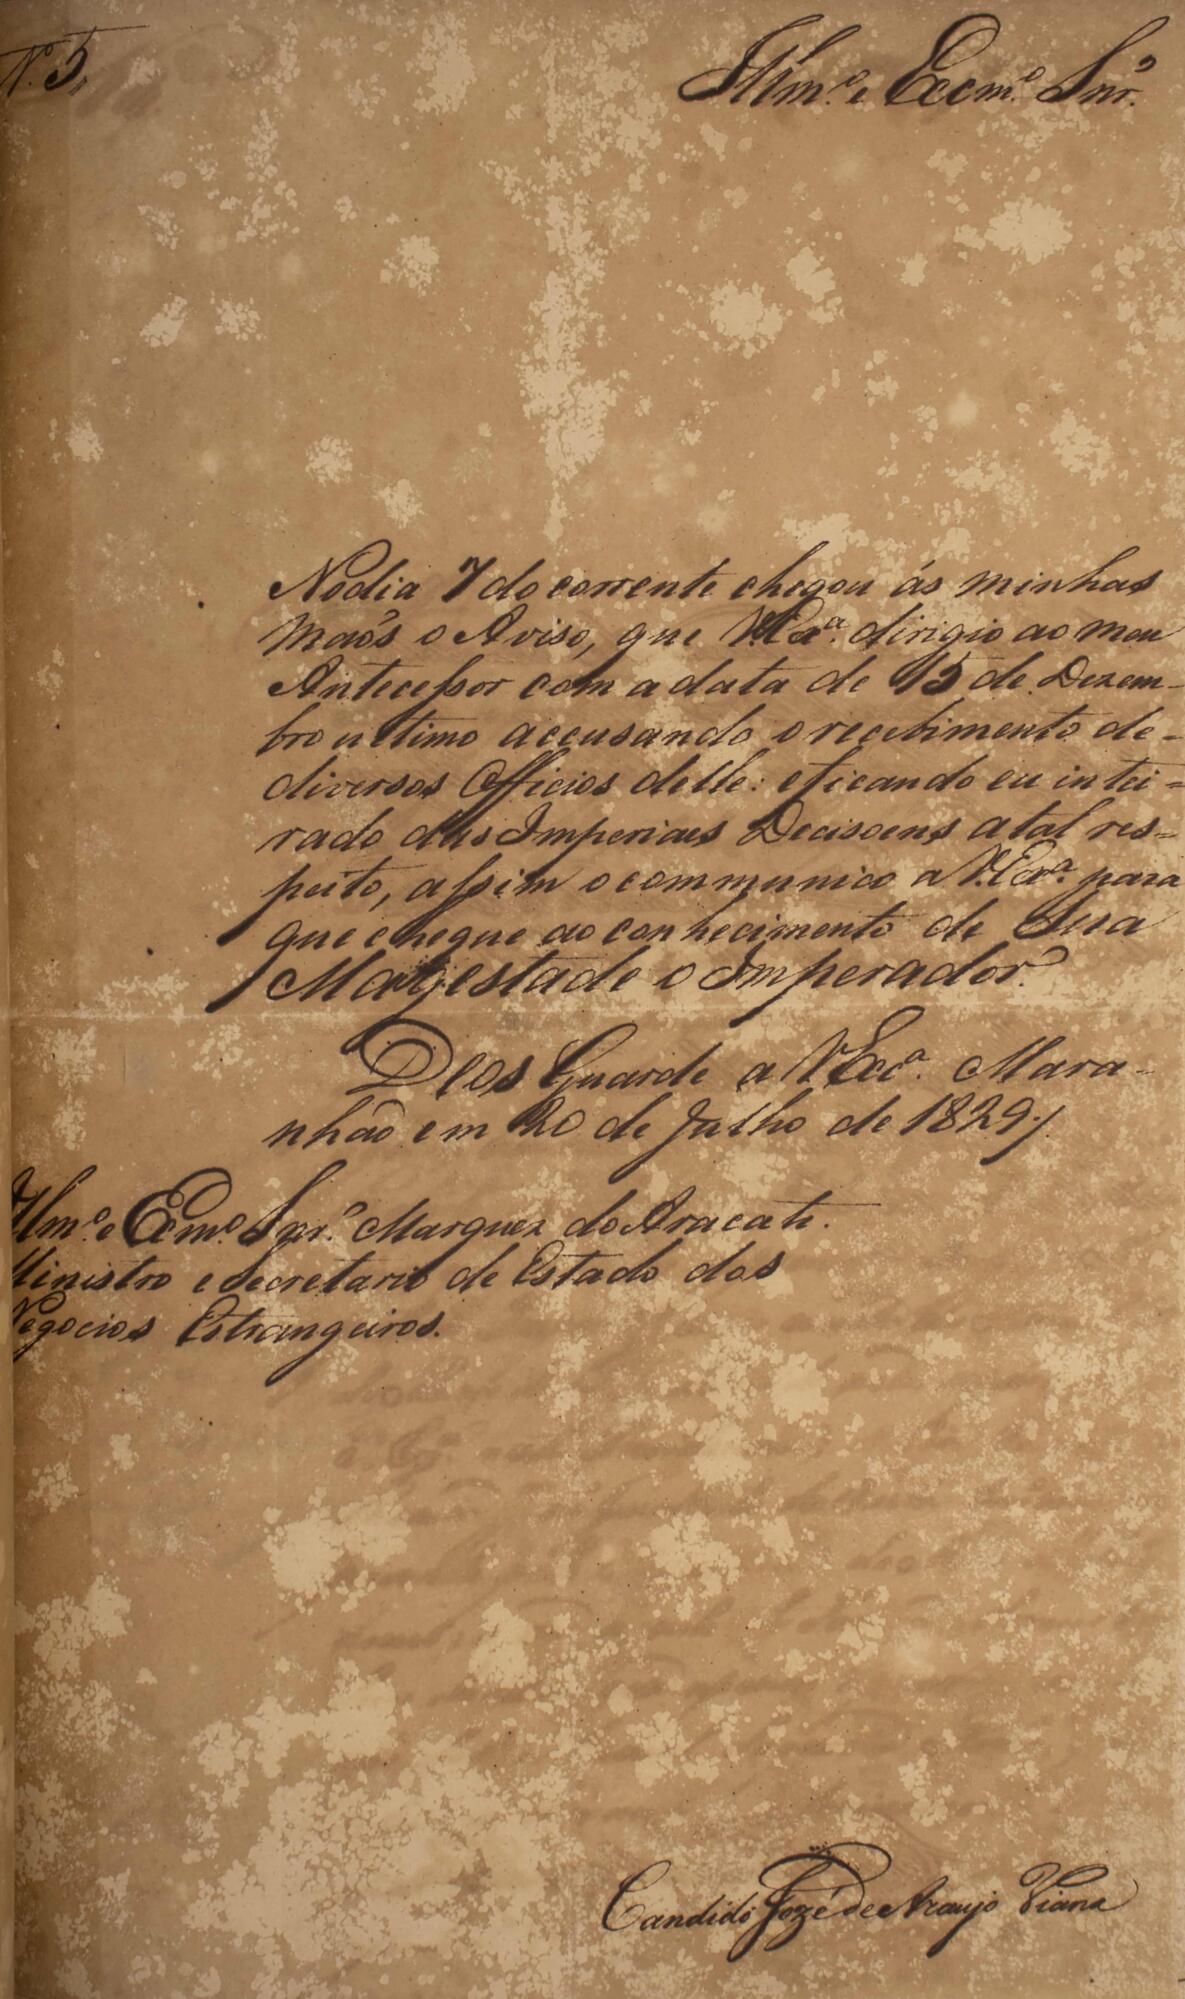 N.º 5,
Illm.º e Excm.º Snr.º
No dia 7 do corrente chegou ás minhas
maõs o Aviso, que V.Exª. dirigio ao meu
Antecessor com a data de 15 de Dezem-
bro ultimo accusando o recebimento de-
diversos Officios delle: e ficando eu intei=
rado das Imperiaes Decisoens a tal res=
peito, assim o communico a V.Exª. para
que chegue ao conhecimento de Sua
Magestade o Imperador.
Deos Guarde a V.Excª. Mara-
nhão em 20 de Julho de 1829./
Illm.º e Exmº. Snr.º Marquez do Aracati.
Ministro e Secretario de Estado dos
Negocios Estrangeiros.
Candido Jozé de Araujo Viana